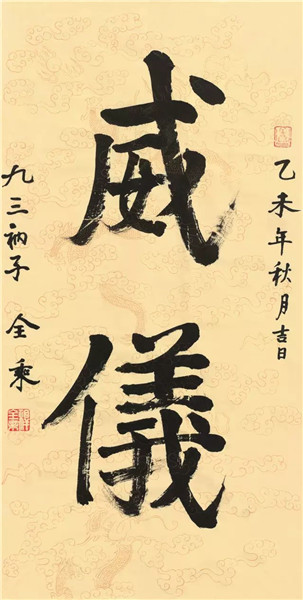 乙未年秋月吉日
威儀
九三衲子 全乘